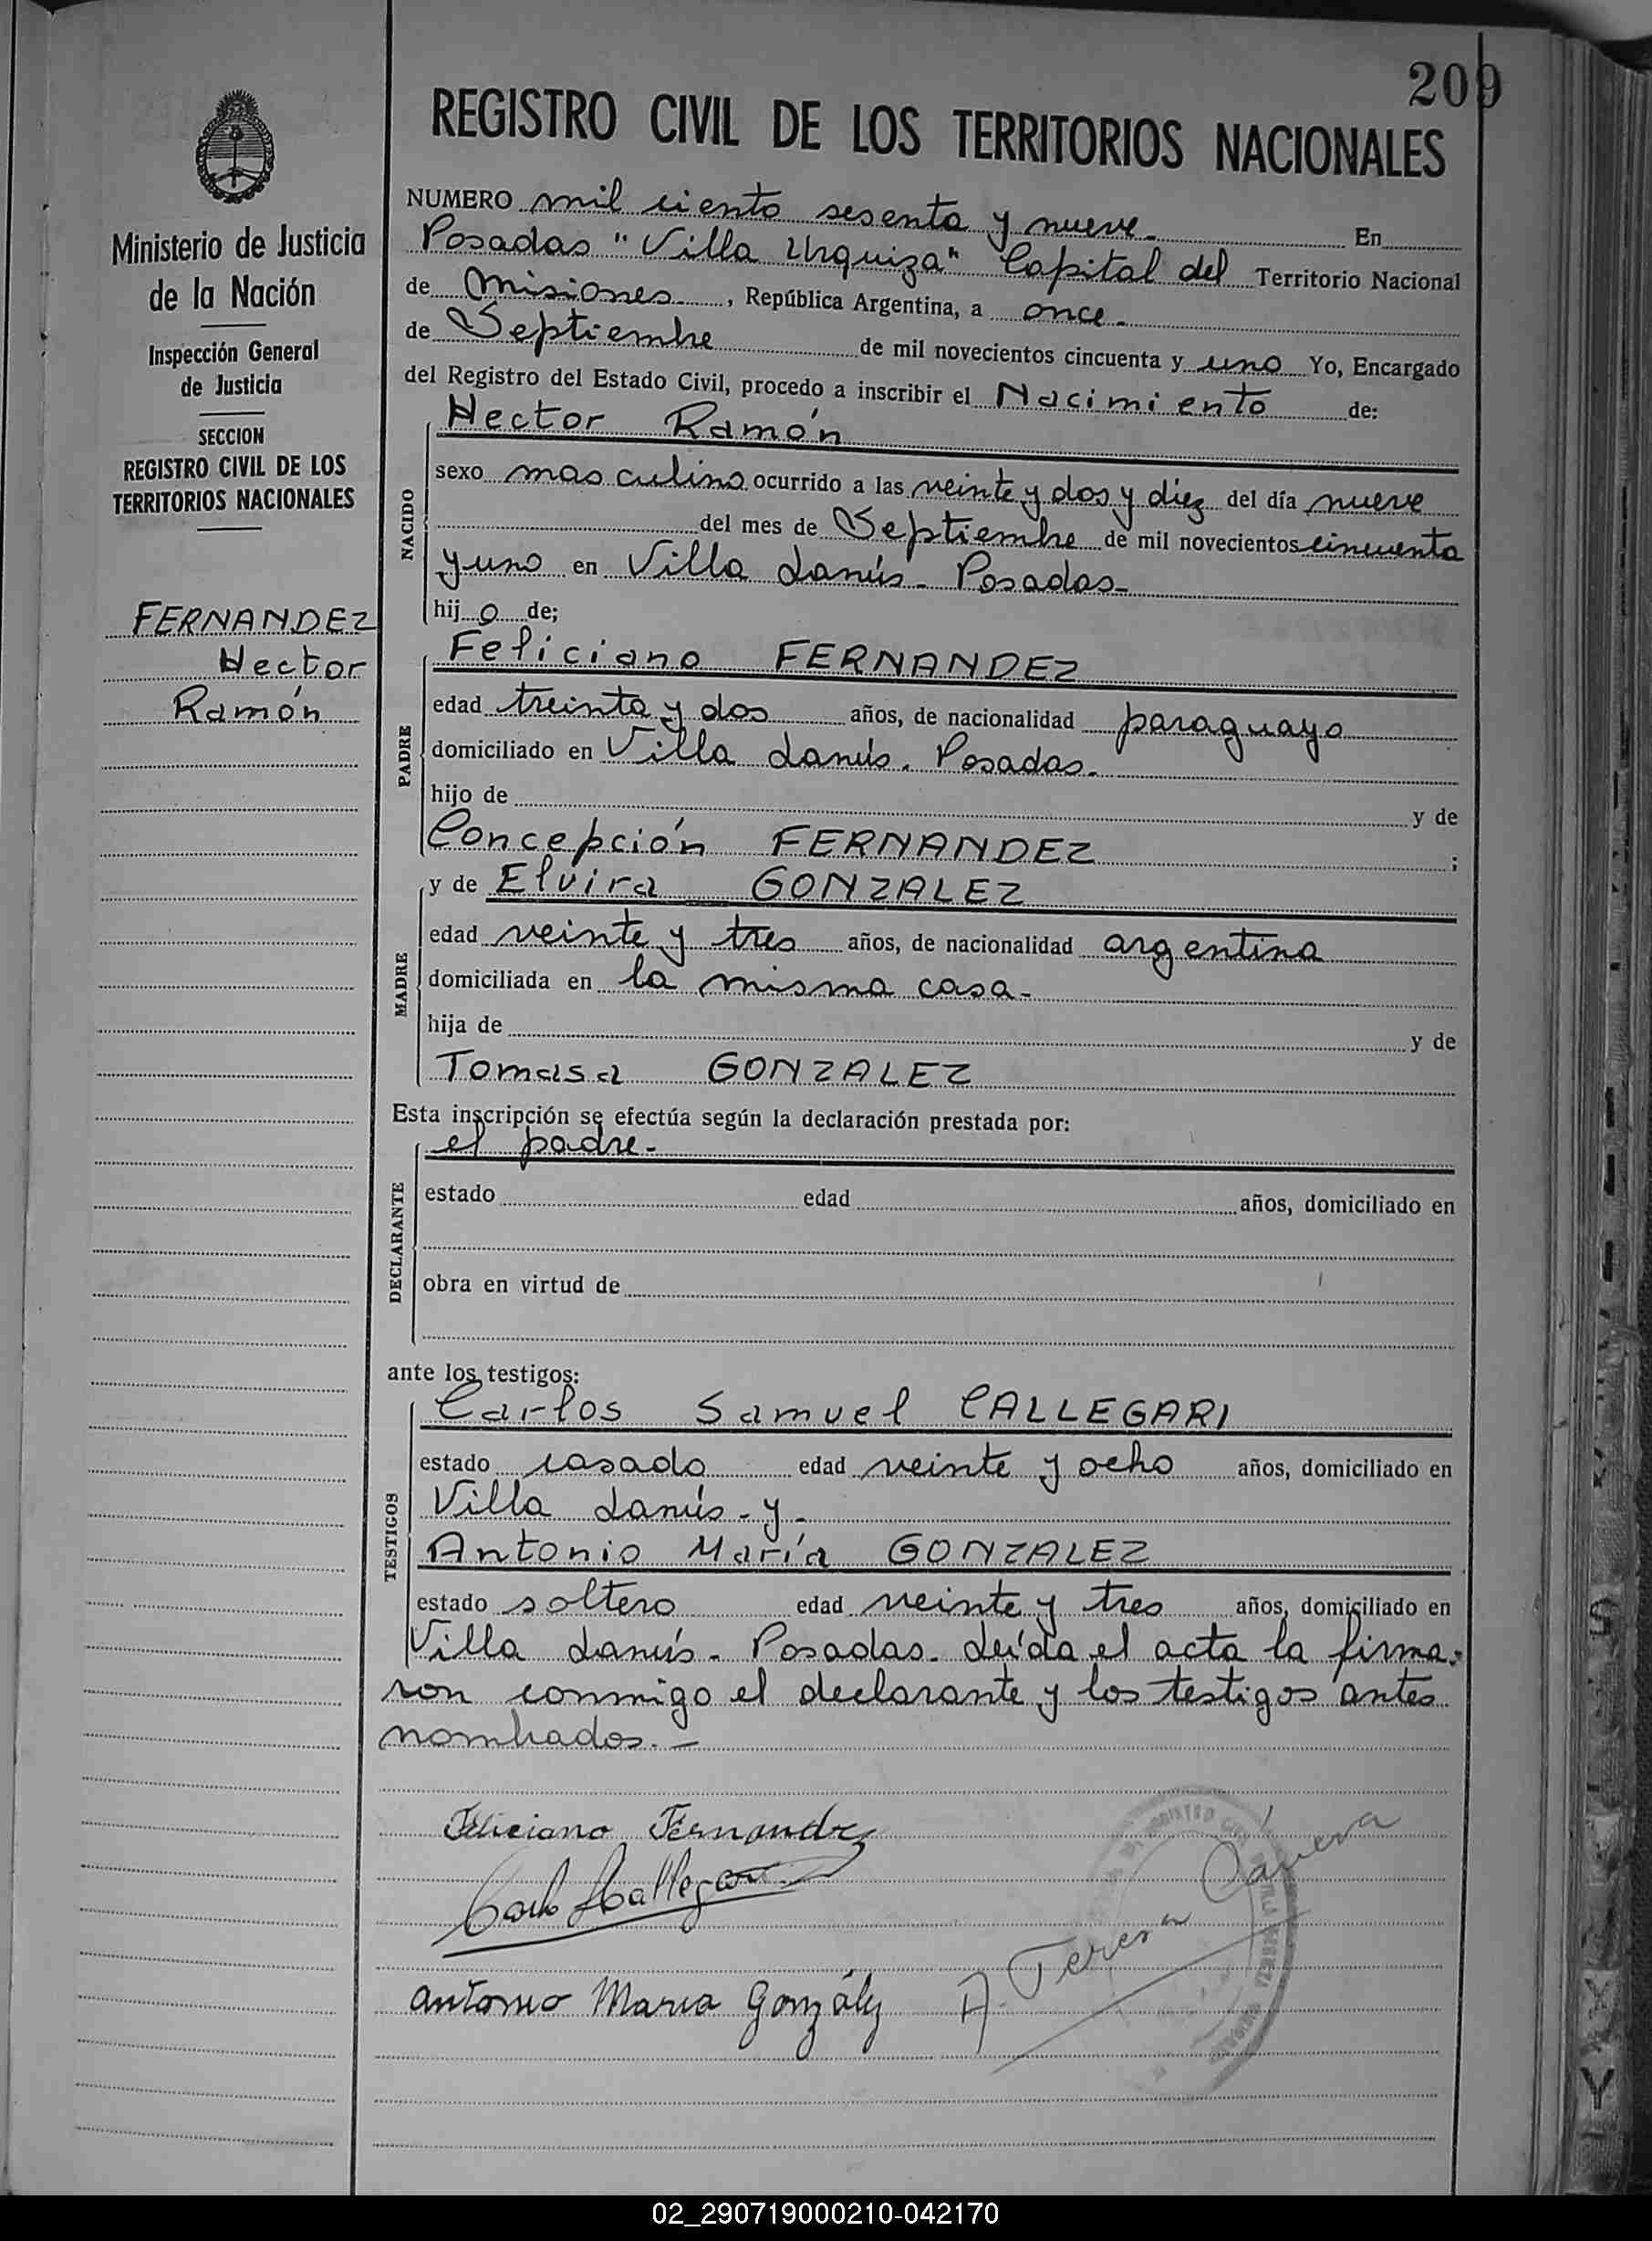 209
REGISTRO CIVIL DE LOS TERRITORIOS NACIONALES
Ministerio de Justicia
de la Nación
Inspección General
de Justicia
SECCION
REGISTRO CIVIL DE LOS
TERRITORIOS NACIONALES
FERNANDEZ
Hector
Ramón
NUMERO mil ciento sesenta y nueve.- En
Posadas "Villa Urquiza" Capital del Territorio Nacional
de Misiones, República Argentina, a once.-
de Septiembre de mil novecientos cincuenta y uno Yo, Encargado
del Registro del Estado Civil, procedo a inscribir el Nacimiento de:
Hector Ramón
NACIDO
sexo masculino ocurrido a las veinte y dos y diez del día nueve
del mes de Septiembre de mil novecientos cincuenta
y uno en Villa Lanús - Posadas-
hij o de;
Feliciano FERNANDEZ
PADRE
edad treinta y dos años, de nacionalidad paraguayo
domiciliado en Villa Lanús. Posadas.-
hijo de y de
Concepción FERNANDEZ ;
y de Elvira GONZALEZ
MADRE
edad veinte y tres años, de nacionalidad argentina
domiciliada en la misma casa-
hija de y de
Tomasa GONZALEZ
Esta inscripción se efectúa según la declaración prestada por:
el padre-
DECLARANTE
estado edad años, domiciliado en
obra en virtud de
ante los testigos:
Carlos Samuel CALLEGARI
TESTIGOS
estado casado edad veinte y ocho años, domiciliado en
Villa Lanús - y-
Antonio María GONZALEZ
estado soltero edad veinte y tres años, domiciliado en
Villa Lanús - Posadas. Leída el acta la firma-
ron conmigo el declarante y los testigos antes
nombrados.-
Feliciano Fernandez
Carlos S Callegari
Antonio Maria González
A. Teresa
02_290719000210-042170